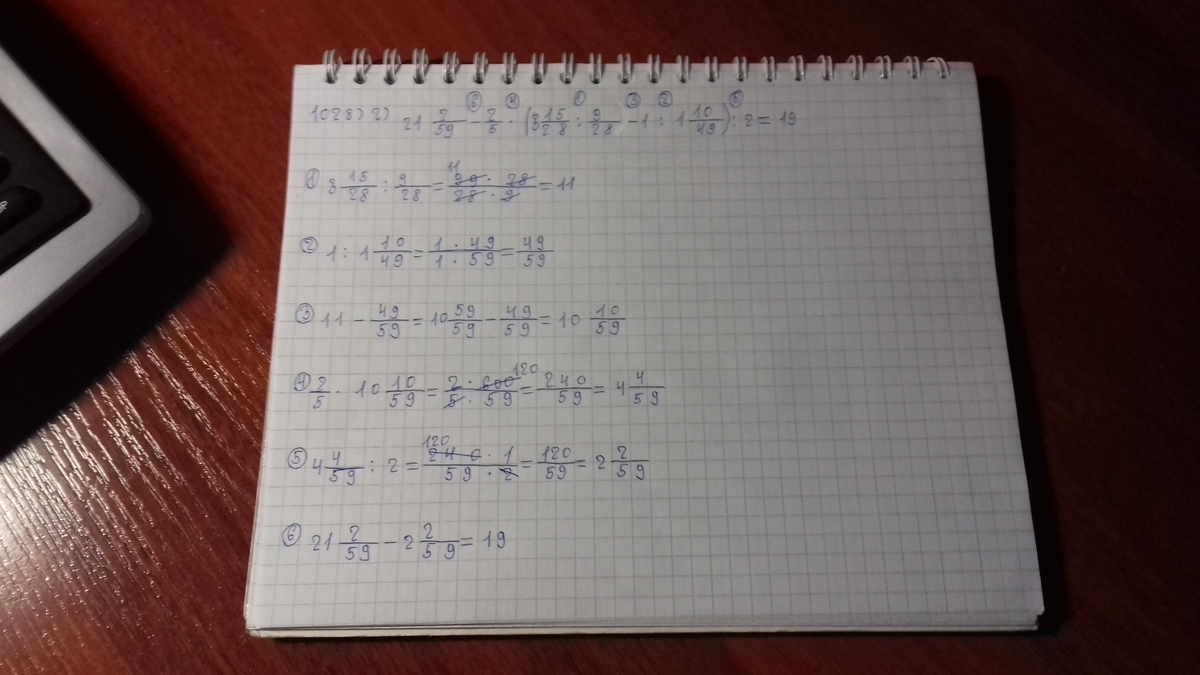 1028) 2) 21 2/59 - 2/5 · (3 15/28 : 9/28 - 1 : 1 10/49) : 2 = 19
① 3 15/28 : 9/28 = 99 · 28 / 28 · 9 = 11
② 1 : 1 10/49 = 1 · 49 / 1 · 59 = 49/59
③ 11 - 49/59 = 10 59/59 - 49/59 = 10 10/59
④ 2/5 · 10 10/59 = 2 · 600 / 5 · 59 = 240/59 = 4 4/59
⑤ 4 4/59 : 2 = 240 · 1 / 59 · 2 = 120/59 = 2 2/59
⑥ 21 2/59 - 2 2/59 = 19